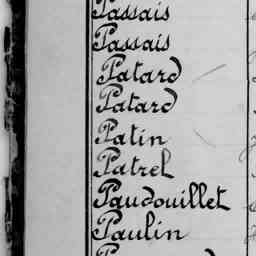 Passais
Passais
Patard
Patard
Patin
Patrel
Paudouillet
Paulin